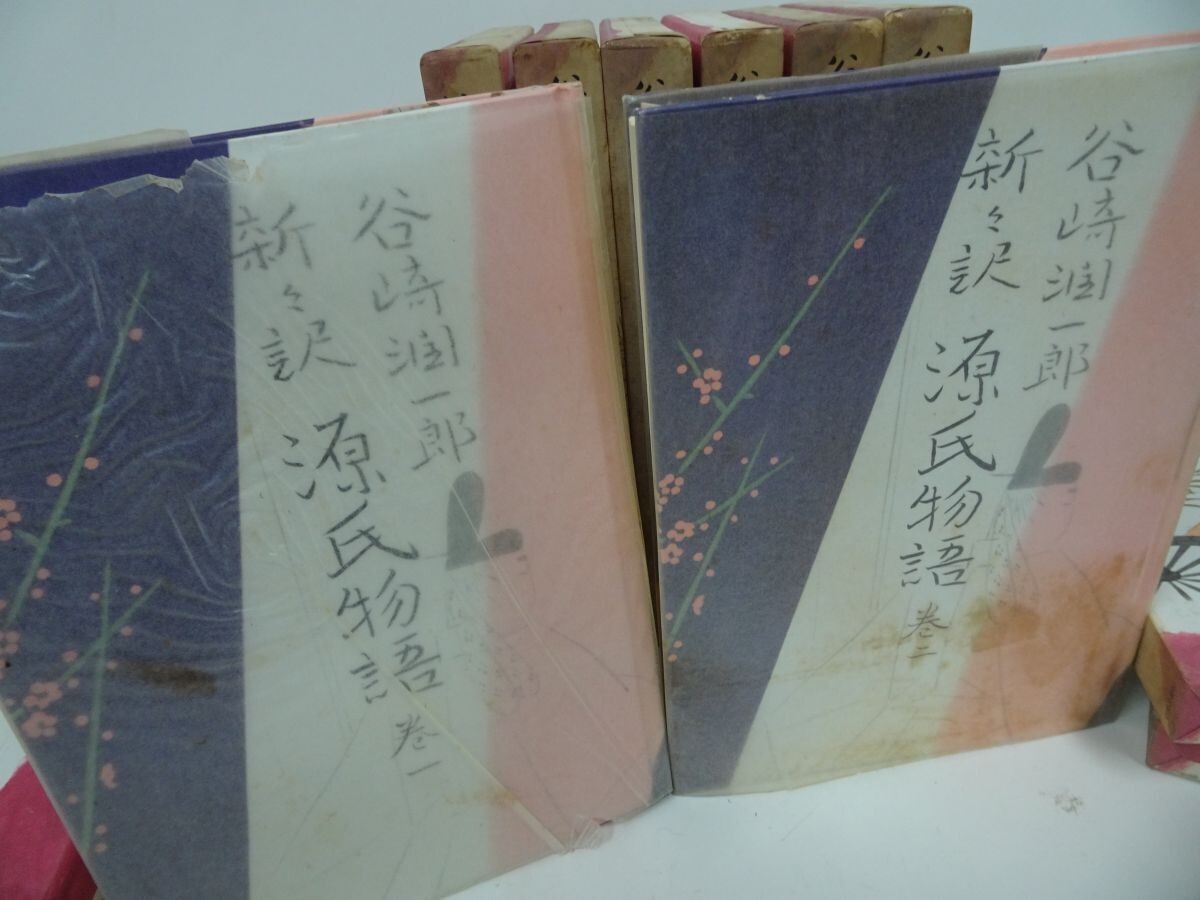 谷崎潤一郎
新々訳 源氏物語 巻一
谷崎潤一郎
新々訳 源氏物語 巻二
谷
谷
谷
谷
谷